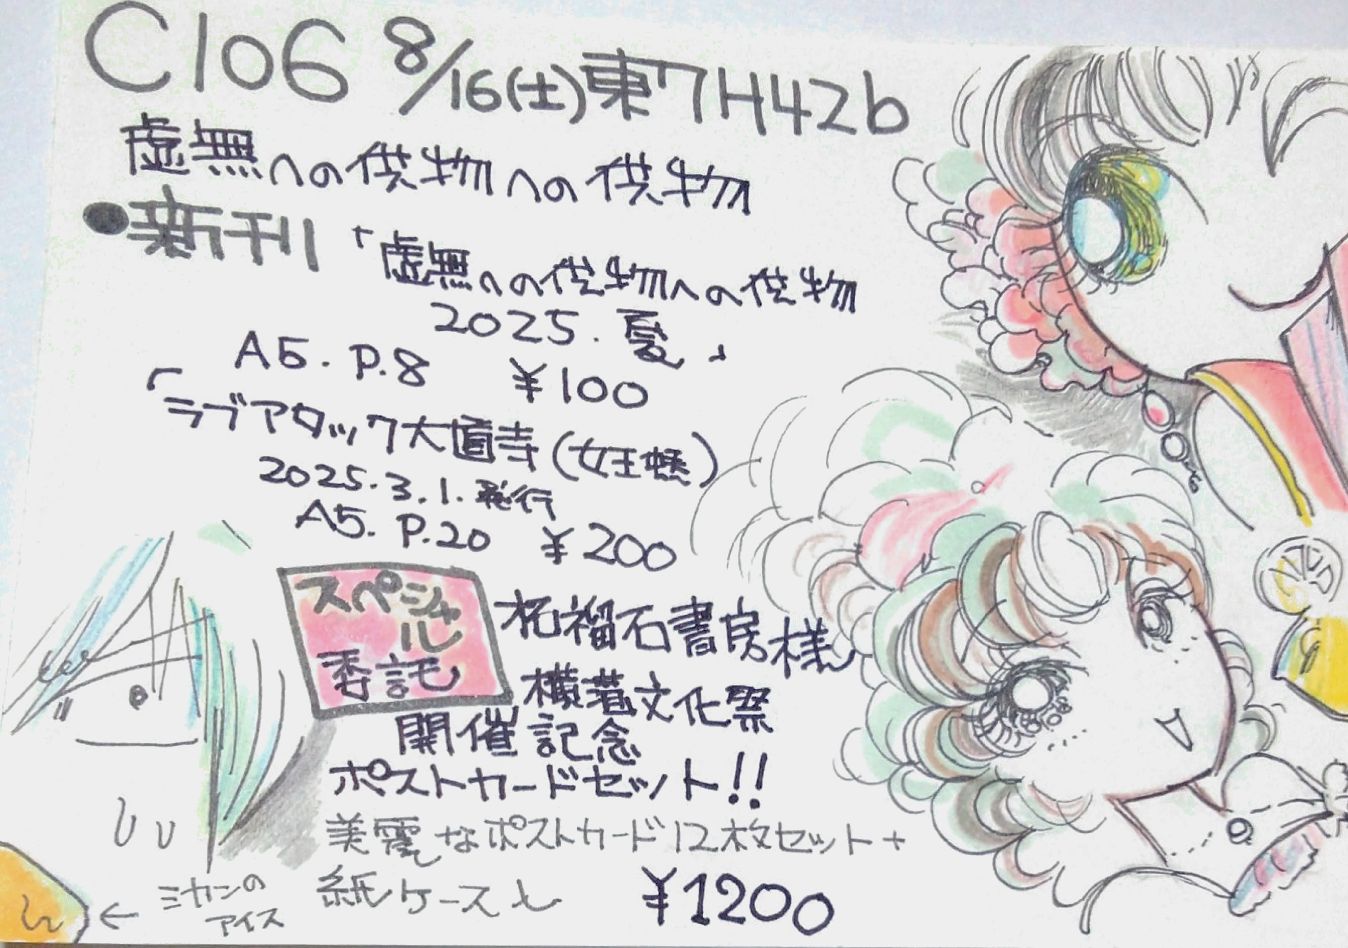 C106 8/16(土)東7H42b
虚無への供物への供物
●新刊「虚無への供物への供物
2025.夏」
A5. P.8 ¥100
「ラブアタック大直寺(女王蜂)
2025.3.1.発行
A5. P.20 ¥200
スペシャル
委託
柘榴石書房様
横着文化祭
開催記念
ポストカードセット!!
美麗なポストカード12枚セット+
紙ケース入 ¥1200
←ミカンの
アイス